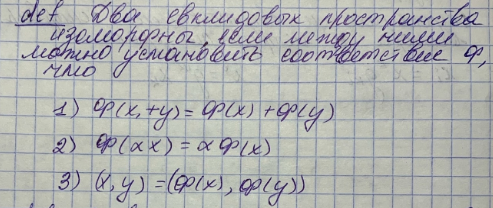 def Два евклидовых пространства
изоморфны, если между ними
можно установить соответствие φ,
что
1) φ(x,+y)=φ(x)+φ(y)
2) φ(αx)=αφ(x)
3) (x,y)=(φ(x), φ(y))